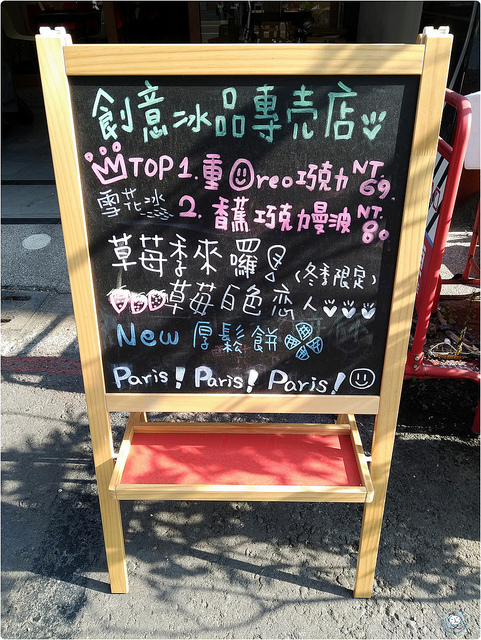 創意冰品專売店
TOP1.重Oreo巧克力 NT.69.
雪花冰 2.香蕉巧克力曼波 NT.80
草莓季來囉!
(冬季限定)
草莓白色恋人
New 厚鬆餅
Paris! Paris! Paris!